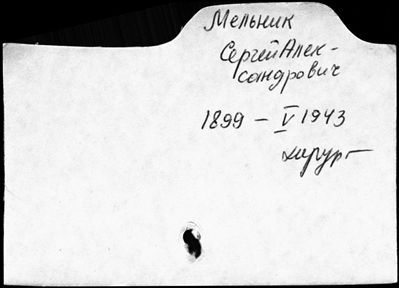 Мельник
Сергей Алек-
сандрович
1899 - V 1943
хирург